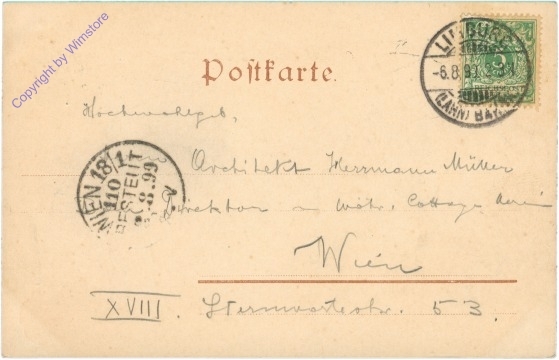 Copyright by Wimstore
Postkarte.
LIMBURG
-6.8.99.
(LAHN) BAH
Hochwohlgeb.
WIEN 18/1
110
BESTELLT
8.99
Architekt Herrmann Müller
Direktor Cottage Verein
Wien
XVIII
Sternwartestr. 53.